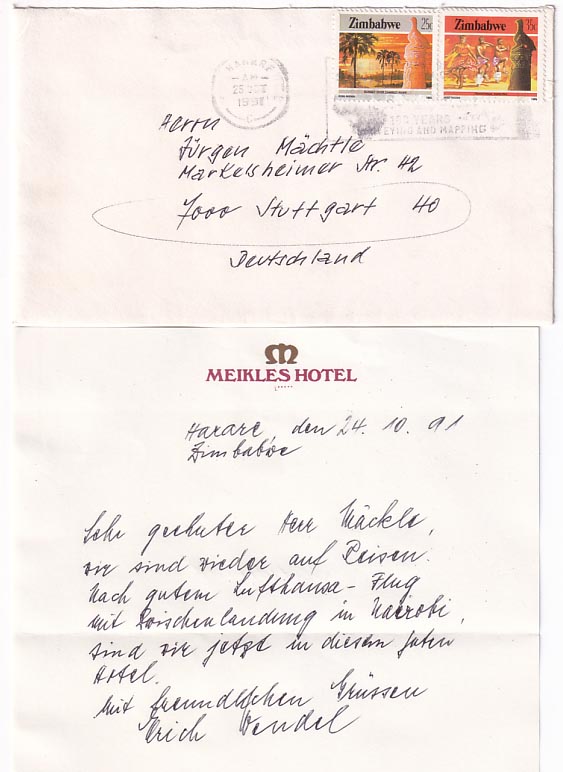 Zimbabwe 25c
Zimbabwe 35c
HARARE
AM
25 OCT
1991
100 YEARS
EYING AND MAPPING
Herrn
Jürgen Mächtle
Markelsheimer Str. 42
7000 Stuttgart 40
Deutschland
MEIKLES HOTEL
Harare, den 24. 10. 91
Zimbabwe
Sehr geehrter Herr Mäckle,
wir sind wieder auf Reisen.
Nach gutem Lufthansa-Flug
mit Zwischenlandung in Nairobi,
sind wir jetzt in diesem guten
Hotel.
Mit freundlichen Grüssen
Erich Wendel